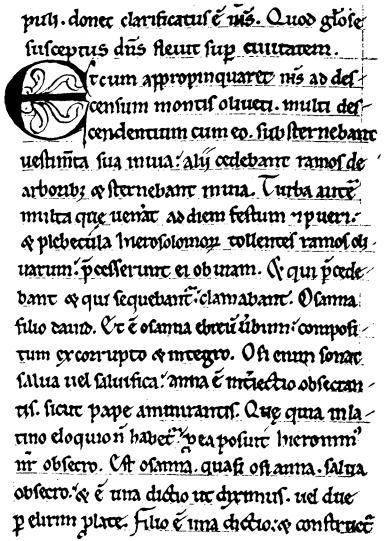 puli. donec clarificatus ē ih̄s. Quod gl̄ose
susceptus dn̄s fleuit sup ciuitatem.
Et cum appropinquaret ih̄s ad des
censum montis oliueti. multi des
cendentium cum eo. substernebant
uestim̄ta sua in uia. alij cedebant ramos de
arborib; & sternebant in uia. Turba autē
multa que uen̄at ad diem festum & pueri.
& plebecula hierosolimoꝝ tollentes ramos oli
uarum. p̄cesserunt ei obuiam. Et qui p̄cede
bant & qui sequebant᷑. clamabant. Osanna
filio dauid. Et ē osanna ebreū ūbum. composi
tum ex corrupto & integro. Osi enim sonat
salua uel saluifica. anna ē int̄iectio obsecran
tis. sicut pape ammirantis. Quę quia in la
tino eloquio n̄ habet᷑. p ea posuit hieronim᷒
nr̄ obsecro. Est osanna. quasi osi anna. salua
obsecro. & ē una dictio ut diximus. uel due
ꝑ elisim plate. Filio ē una dictio. & construct᷑